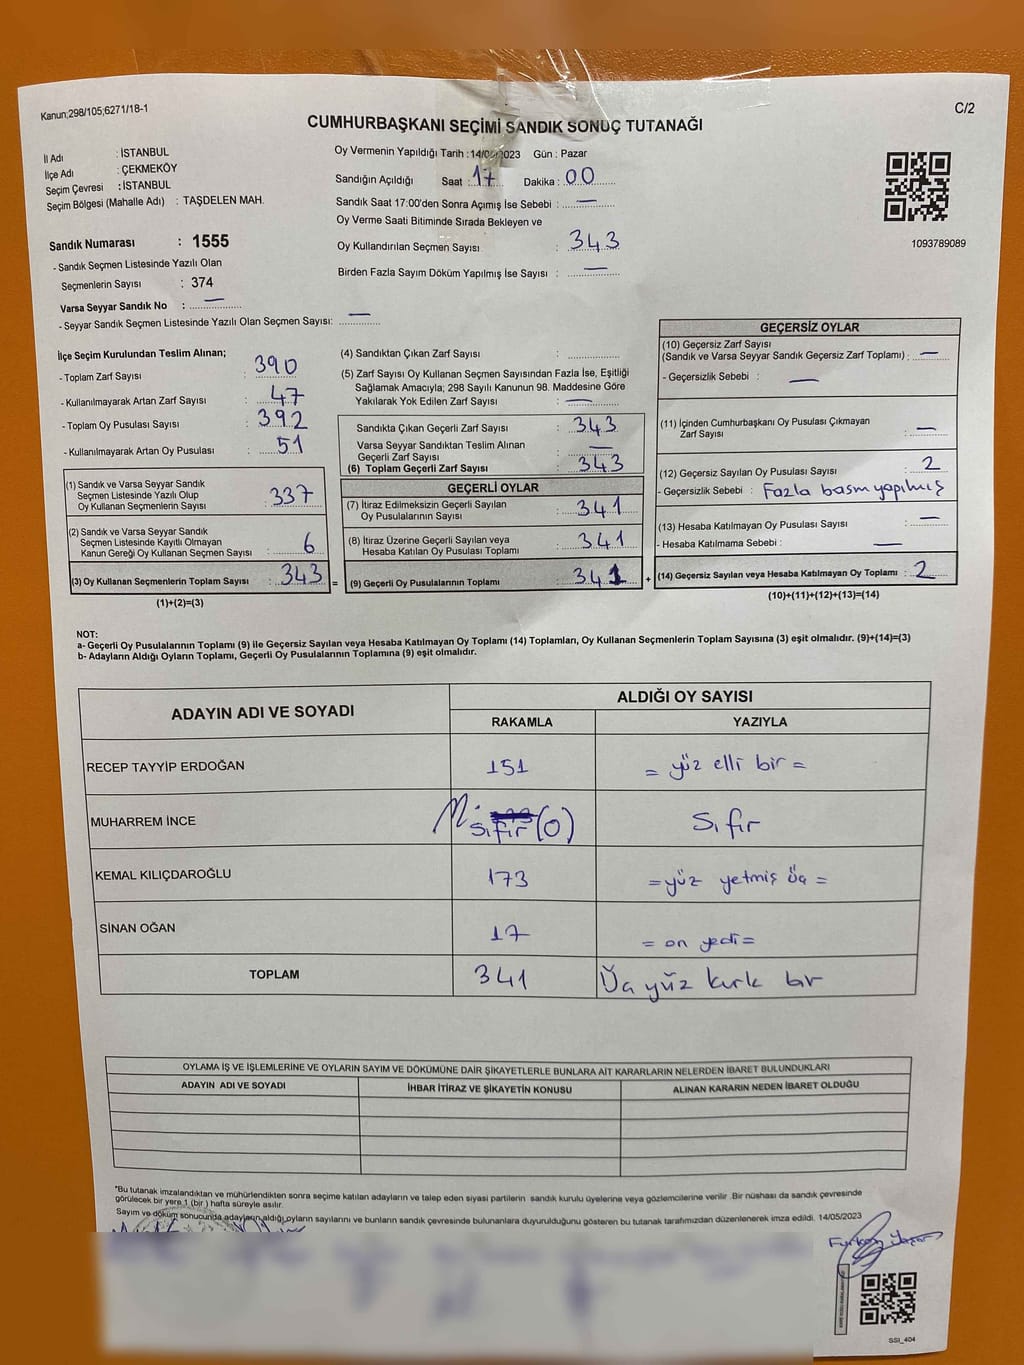 Kanun;298/105;6271/18-1
C/2
CUMHURBAŞKANI SEÇİMİ SANDIK SONUÇ TUTANAĞI
İl Adı : İSTANBUL
İlçe Adı : ÇEKMEKÖY
Seçim Çevresi : İSTANBUL
Seçim Bölgesi (Mahalle Adı) : TAŞDELEN MAH.
Sandık Numarası : 1555
- Sandık Seçmen Listesinde Yazılı Olan
Seçmenlerin Sayısı : 374
Varsa Seyyar Sandık No : —
- Seyyar Sandık Seçmen Listesinde Yazılı Olan Seçmen Sayısı: —
Oy Vermenin Yapıldığı Tarih : 14/05/2023 Gün : Pazar
Sandığın Açıldığı Saat : 17 Dakika : 00
Sandık Saat 17:00'den Sonra Açımış İse Sebebi : —
Oy Verme Saati Bitiminde Sırada Bekleyen ve
Oy Kullandırılan Seçmen Sayısı : 343
Birden Fazla Sayım Döküm Yapılmış İse Sayısı : —
1093789089
İlçe Seçim Kurulundan Teslim Alınan;
- Toplam Zarf Sayısı : 390
- Kullanılmayarak Artan Zarf Sayısı : 47
- Toplam Oy Pusulası Sayısı : 392
- Kullanılmayarak Artan Oy Pusulası : 51
(1) Sandık ve Varsa Seyyar Sandık
Seçmen Listesinde Yazılı Olup
Oy Kullanan Seçmenlerin Sayısı : 337
(2) Sandık ve Varsa Seyyar Sandık
Seçmen Listesinde Kayıtlı Olmayan
Kanun Gereği Oy Kullanan Seçmen Sayısı : 6
(3) Oy Kullanan Seçmenlerin Toplam Sayısı : 343 =
(1)+(2)=(3)
(4) Sandıktan Çıkan Zarf Sayısı :
(5) Zarf Sayısı Oy Kullanan Seçmen Sayısından Fazla İse, Eşitliği
Sağlamak Amacıyla; 298 Sayılı Kanunun 98. Maddesine Göre
Yakılarak Yok Edilen Zarf Sayısı : —
Sandıkta Çıkan Geçerli Zarf Sayısı : 343
Varsa Seyyar Sandıktan Teslim Alınan
Geçerli Zarf Sayısı : —
(6) Toplam Geçerli Zarf Sayısı : 343
GEÇERLİ OYLAR
(7) İtiraz Edilmeksizin Geçerli Sayılan
Oy Pusulalarının Sayısı : 341
(8) İtiraz Üzerine Geçerli Sayılan veya
Hesaba Katılan Oy Pusulası Toplamı : 341
(9) Geçerli Oy Pusulalarının Toplamı : 341 +
GEÇERSİZ OYLAR
(10) Geçersiz Zarf Sayısı
(Sandık ve Varsa Seyyar Sandık Geçersiz Zarf Toplamı) : —
- Geçersizlik Sebebi : —
(11) İçinden Cumhurbaşkanı Oy Pusulası Çıkmayan
Zarf Sayısı : —
(12) Geçersiz Sayılan Oy Pusulası Sayısı : 2
- Geçersizlik Sebebi : Fazla basım yapılmış
(13) Hesaba Katılmayan Oy Pusulası Sayısı : —
- Hesaba Katılmama Sebebi : —
(14) Geçersiz Sayılan veya Hesaba Katılmayan Oy Toplamı : 2
(10)+(11)+(12)+(13)=(14)
NOT:
a- Geçerli Oy Pusulalarının Toplamı (9) ile Geçersiz Sayılan veya Hesaba Katılmayan Oy Toplamı (14) Toplamları, Oy Kullanan Seçmenlerin Toplam Sayısına (3) eşit olmalıdır. (9)+(14)=(3)
b- Adayların Aldığı Oyların Toplamı, Geçerli Oy Pusulalarının Toplamına (9) eşit olmalıdır.
ADAYIN ADI VE SOYADI
ALDIĞI OY SAYISI
RAKAMLA YAZIYLA
RECEP TAYYİP ERDOĞAN 151 = yüz elli bir =
MUHARREM İNCE Sıfır (0) Sıfır
KEMAL KILIÇDAROĞLU 173 = yüz yetmiş üç =
SİNAN OĞAN 17 = on yedi =
TOPLAM 341 Üç yüz kırk bir
OYLAMA İŞ VE İŞLEMLERİNE VE OYLARIN SAYIM VE DÖKÜMÜNE DAİR ŞİKAYETLERLE BUNLARA AİT KARARLARIN NELERDEN İBARET BULUNDUKLARI
ADAYIN ADI VE SOYADI İHBAR İTİRAZ VE ŞİKAYETİN KONUSU ALINAN KARARIN NEDEN İBARET OLDUĞU
"Bu tutanak imzalandıktan ve mühürlendikten sonra seçime katılan adayların ve talep eden siyasi partilerin sandık kurulu üyelerine veya gözlemcilerine verilir .Bir nüshası da sandık çevresinde
görülecek bir yere 1 (bir ) hafta süreyle asılır.
Sayım ve döküm sonucunda adayların aldığı oyların sayılarını ve bunların sandık çevresinde bulunanlara duyurulduğunu gösteren bu tutanak tarafımızdan düzenlenerek imza edildi. 14/05/2023
SSI_404